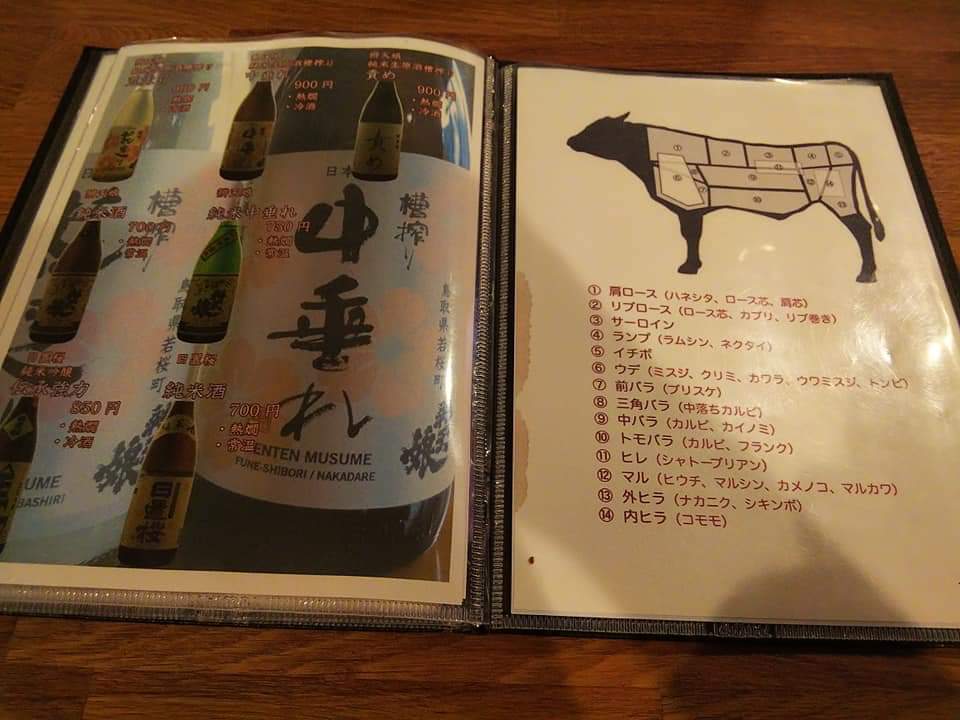 辨天娘
900円
・熱燗
・冷酒
辨天娘
純米生原酒槽搾り
責め
900円
・熱燗
・冷酒
純米酒
700円
・熱燗
・常温
純米中垂れ
750円
・熱燗
・常温
日置桜
純米吟醸
850円
・熱燗
・冷酒
日置桜
純米酒
700円
・熱燗
・常温
槽搾
中垂れ
鳥取県若桜町
BENTEN MUSUME
FUNE-SHIBORI / NAKADARE
① 肩ロース（ハネシタ、ロース芯、肩芯）
② リブロース（ロース芯、カブリ、リブ巻き）
③ サーロイン
④ ランプ（ラムシン、ネクタイ）
⑤ イチボ
⑥ ウデ（ミスジ、クリミ、カワラ、ウワミスジ、トンビ）
⑦ 前バラ（ブリスケ）
⑧ 三角バラ（中落ちカルビ）
⑨ 中バラ（カルビ、カイノミ）
⑩ トモバラ（カルビ、フランク）
⑪ ヒレ（シャトーブリアン）
⑫ マル（ヒウチ、マルシン、カメノコ、マルカワ）
⑬ 外ヒラ（ナカニク、シキンボ）
⑭ 内ヒラ（コモモ）